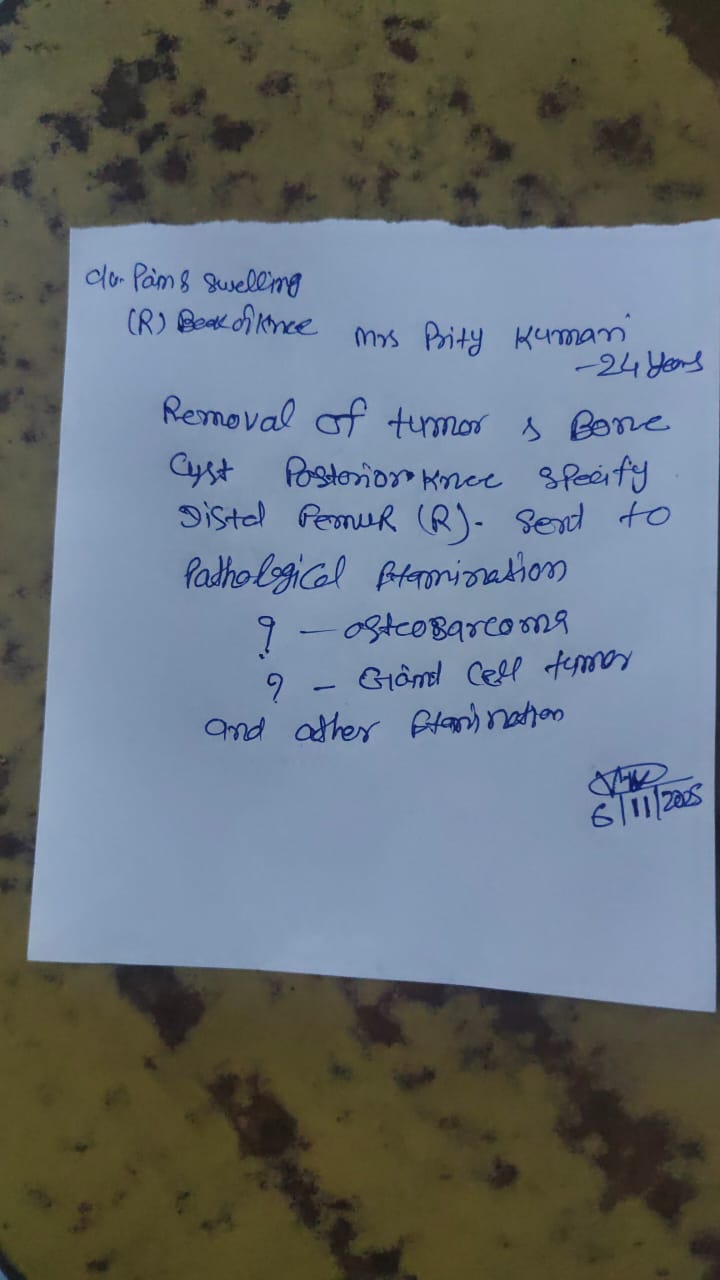 c/o. Pain & swelling
(R) Back of Knee
Mrs Prity Kumari
-24 years
Removal of tumor & Bone
Cyst Posterior Knee specify
Distal Femur (R)- Send to
Pathological Examination
? - osteosarcoma
? - Giant Cell tumor
and other Examination
6/11/2025